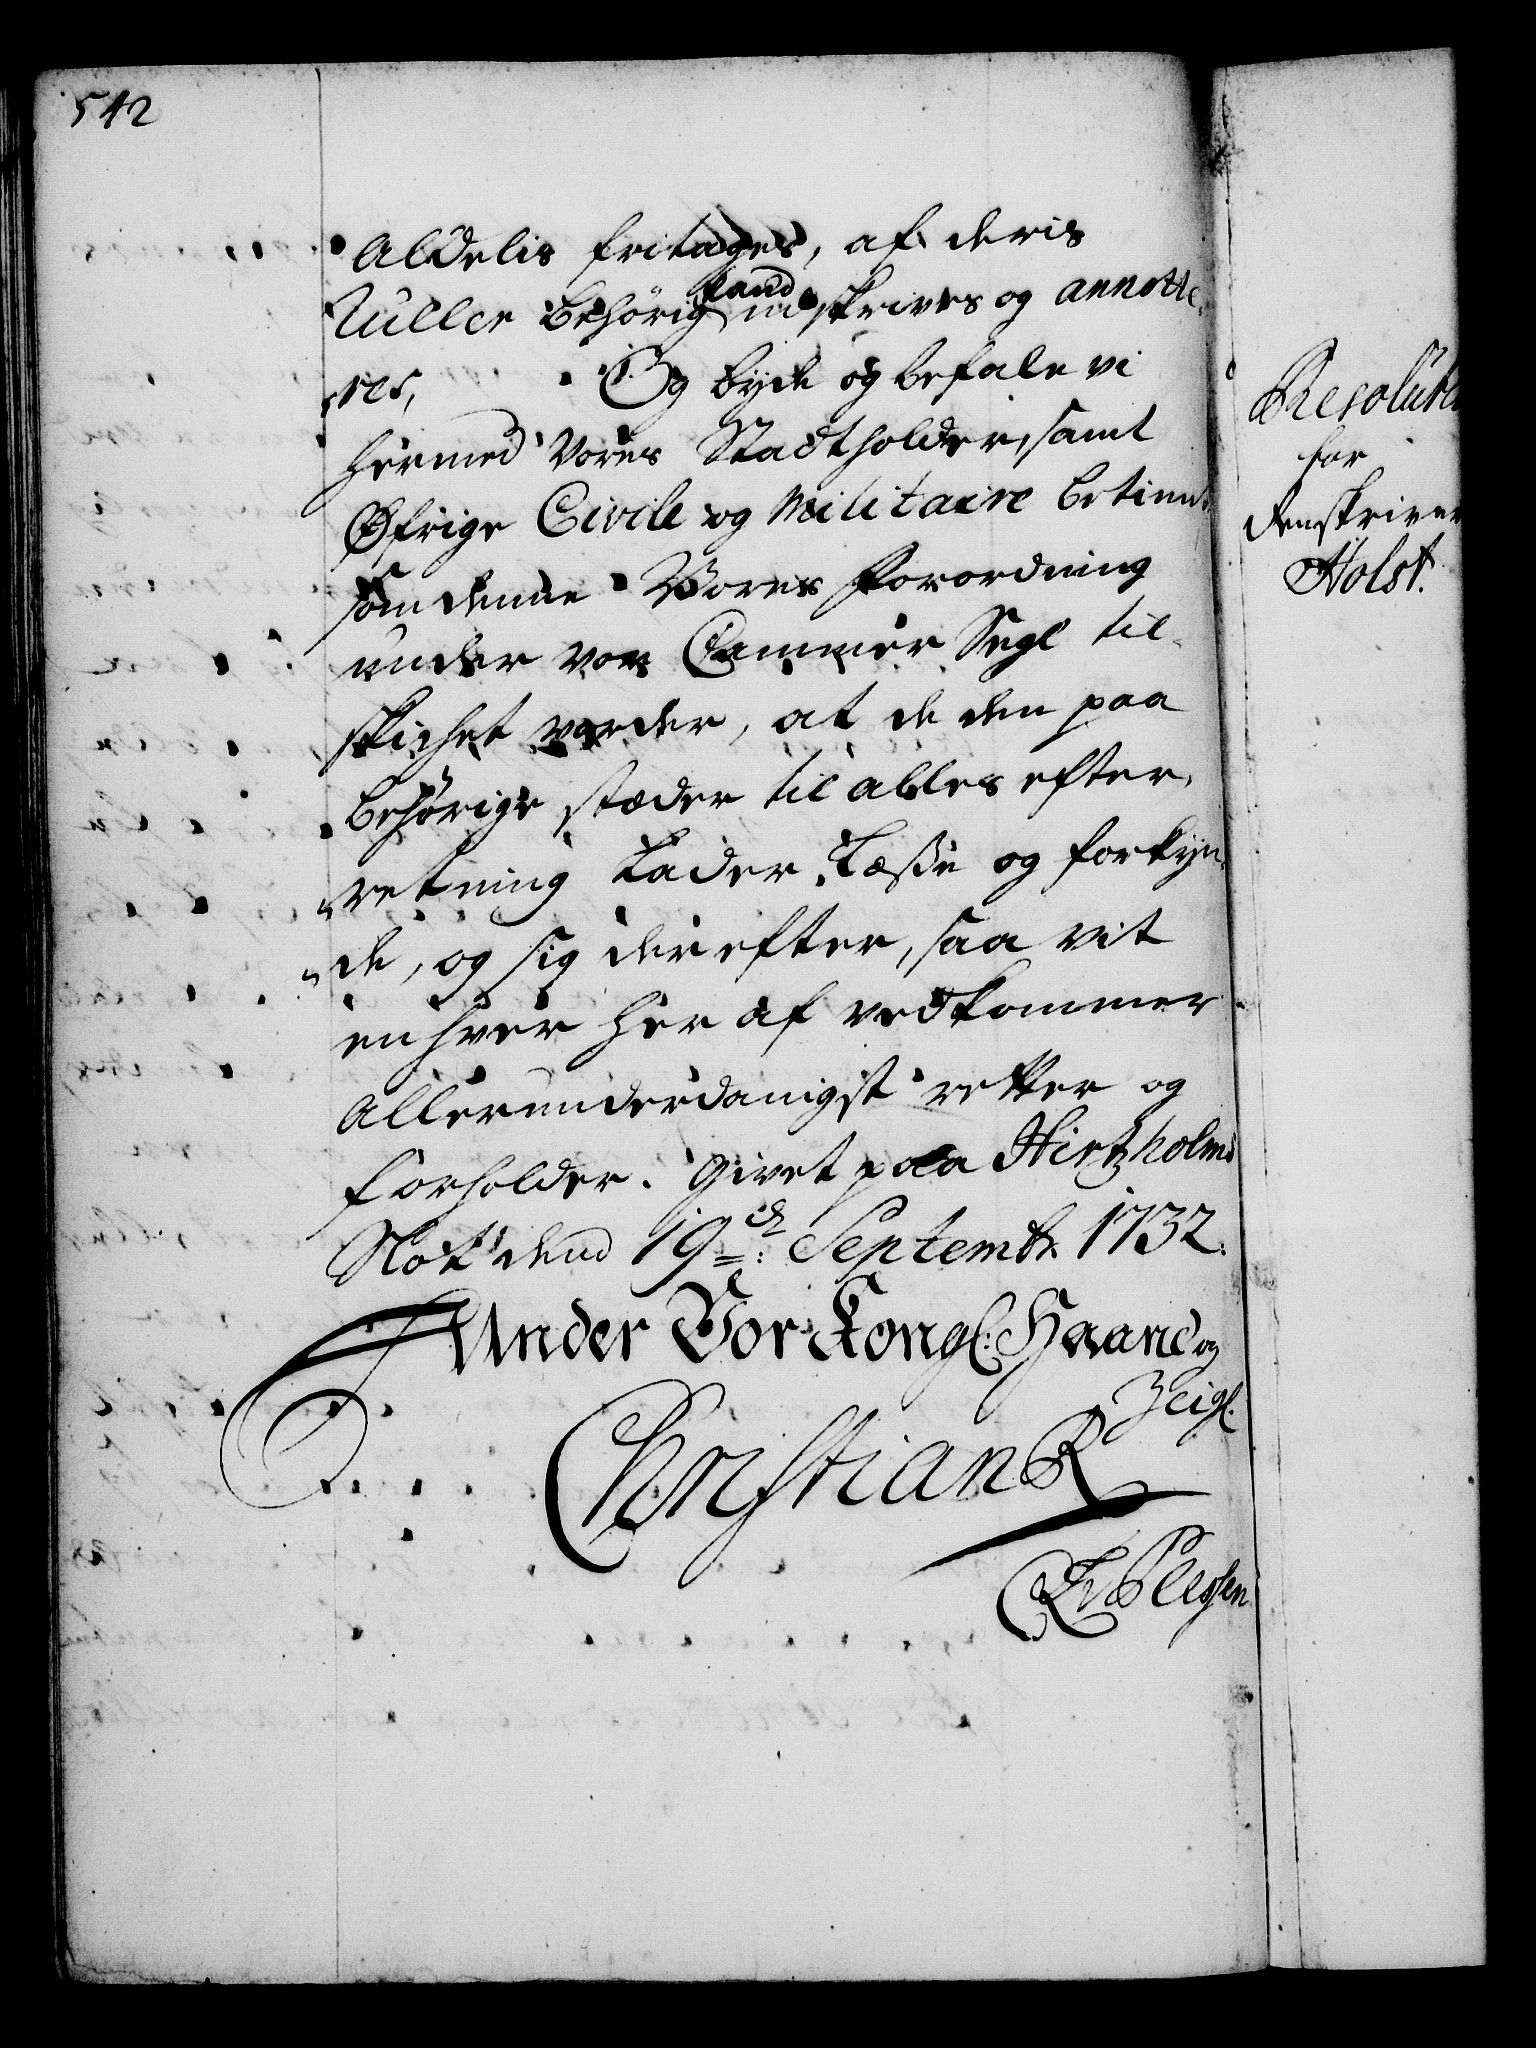 542
Aldelis fritages, af deris
Ruller behörig udskrives og annotte-
res, Og byde og befale vi
hermed Vores Stadtholder, samt
Øfrige Civile og Militaire betiente
som denne Vores Forordning
under vor Cammer Segl til-
skichet vorder, at de den paa
behörige stæder til alles efter-
retning Lader Læße og forkyn-
de, og sig derefter, saa vit
enhver her af vedkommer
Allerunderdanigst retter og
forholder. Givet paa Hirtzholms
Slot dend 19de Septembr. 1732.
Under Vor Kongl: Haand og
Zeigl.
Christian R
CAvPlessen
Resolution
for
Renskriver
Holst.